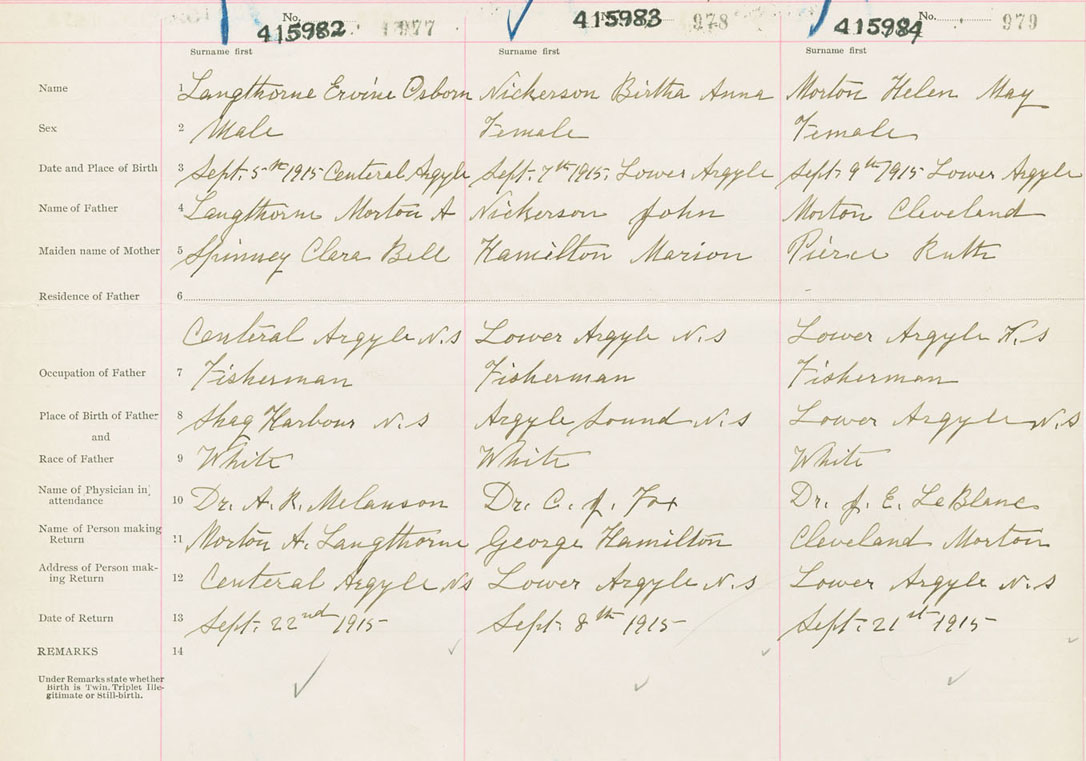 No. 415982 1977 No. 415983 978 415984 No. 979
Surname first Surname first Surname first
Name 1 Langthorne Ervine Osborn Nickerson Birtha Anna Morton Helen May
Sex 2 Male Female Female
Date and Place of Birth 3 Sept. 5th 1915 Centeral Argyle Sept. 7th 1915. Lower Argyle Sept. 9th 1915 Lower Argyle
Name of Father 4 Langthorne Morton A Nickerson John Morton Cleveland
Maiden name of Mother 5 Spinney Clara Bell Hamilton Marion Pierce Ruth
Residence of Father 6
Centeral Argyle N.S Lower Argyle N.S Lower Argyle N.S
Occupation of Father 7 Fisherman Fisherman Fisherman
Place of Birth of Father 8 Shag Harbour N.S Argyle Sound N.S Lower Argyle N.S
and
Race of Father 9 White White White
Name of Physician in
attendance 10 Dr. A. R. Melanson Dr. C. J. Fox Dr. J. E. LeBlanc
Name of Person making
Return 11 Morton A. Langthorne George Hamilton Cleveland Morton
Address of Person mak-
ing Return 12 Centeral Argyle N.S Lower Argyle N.S Lower Argyle N.S
Date of Return 13 Sept. 22nd 1915 Sept. 8th 1915 Sept. 21st 1915
REMARKS 14
Under Remarks state whether
Birth is Twin. Triplet Ille-
gitimate or Still-birth.